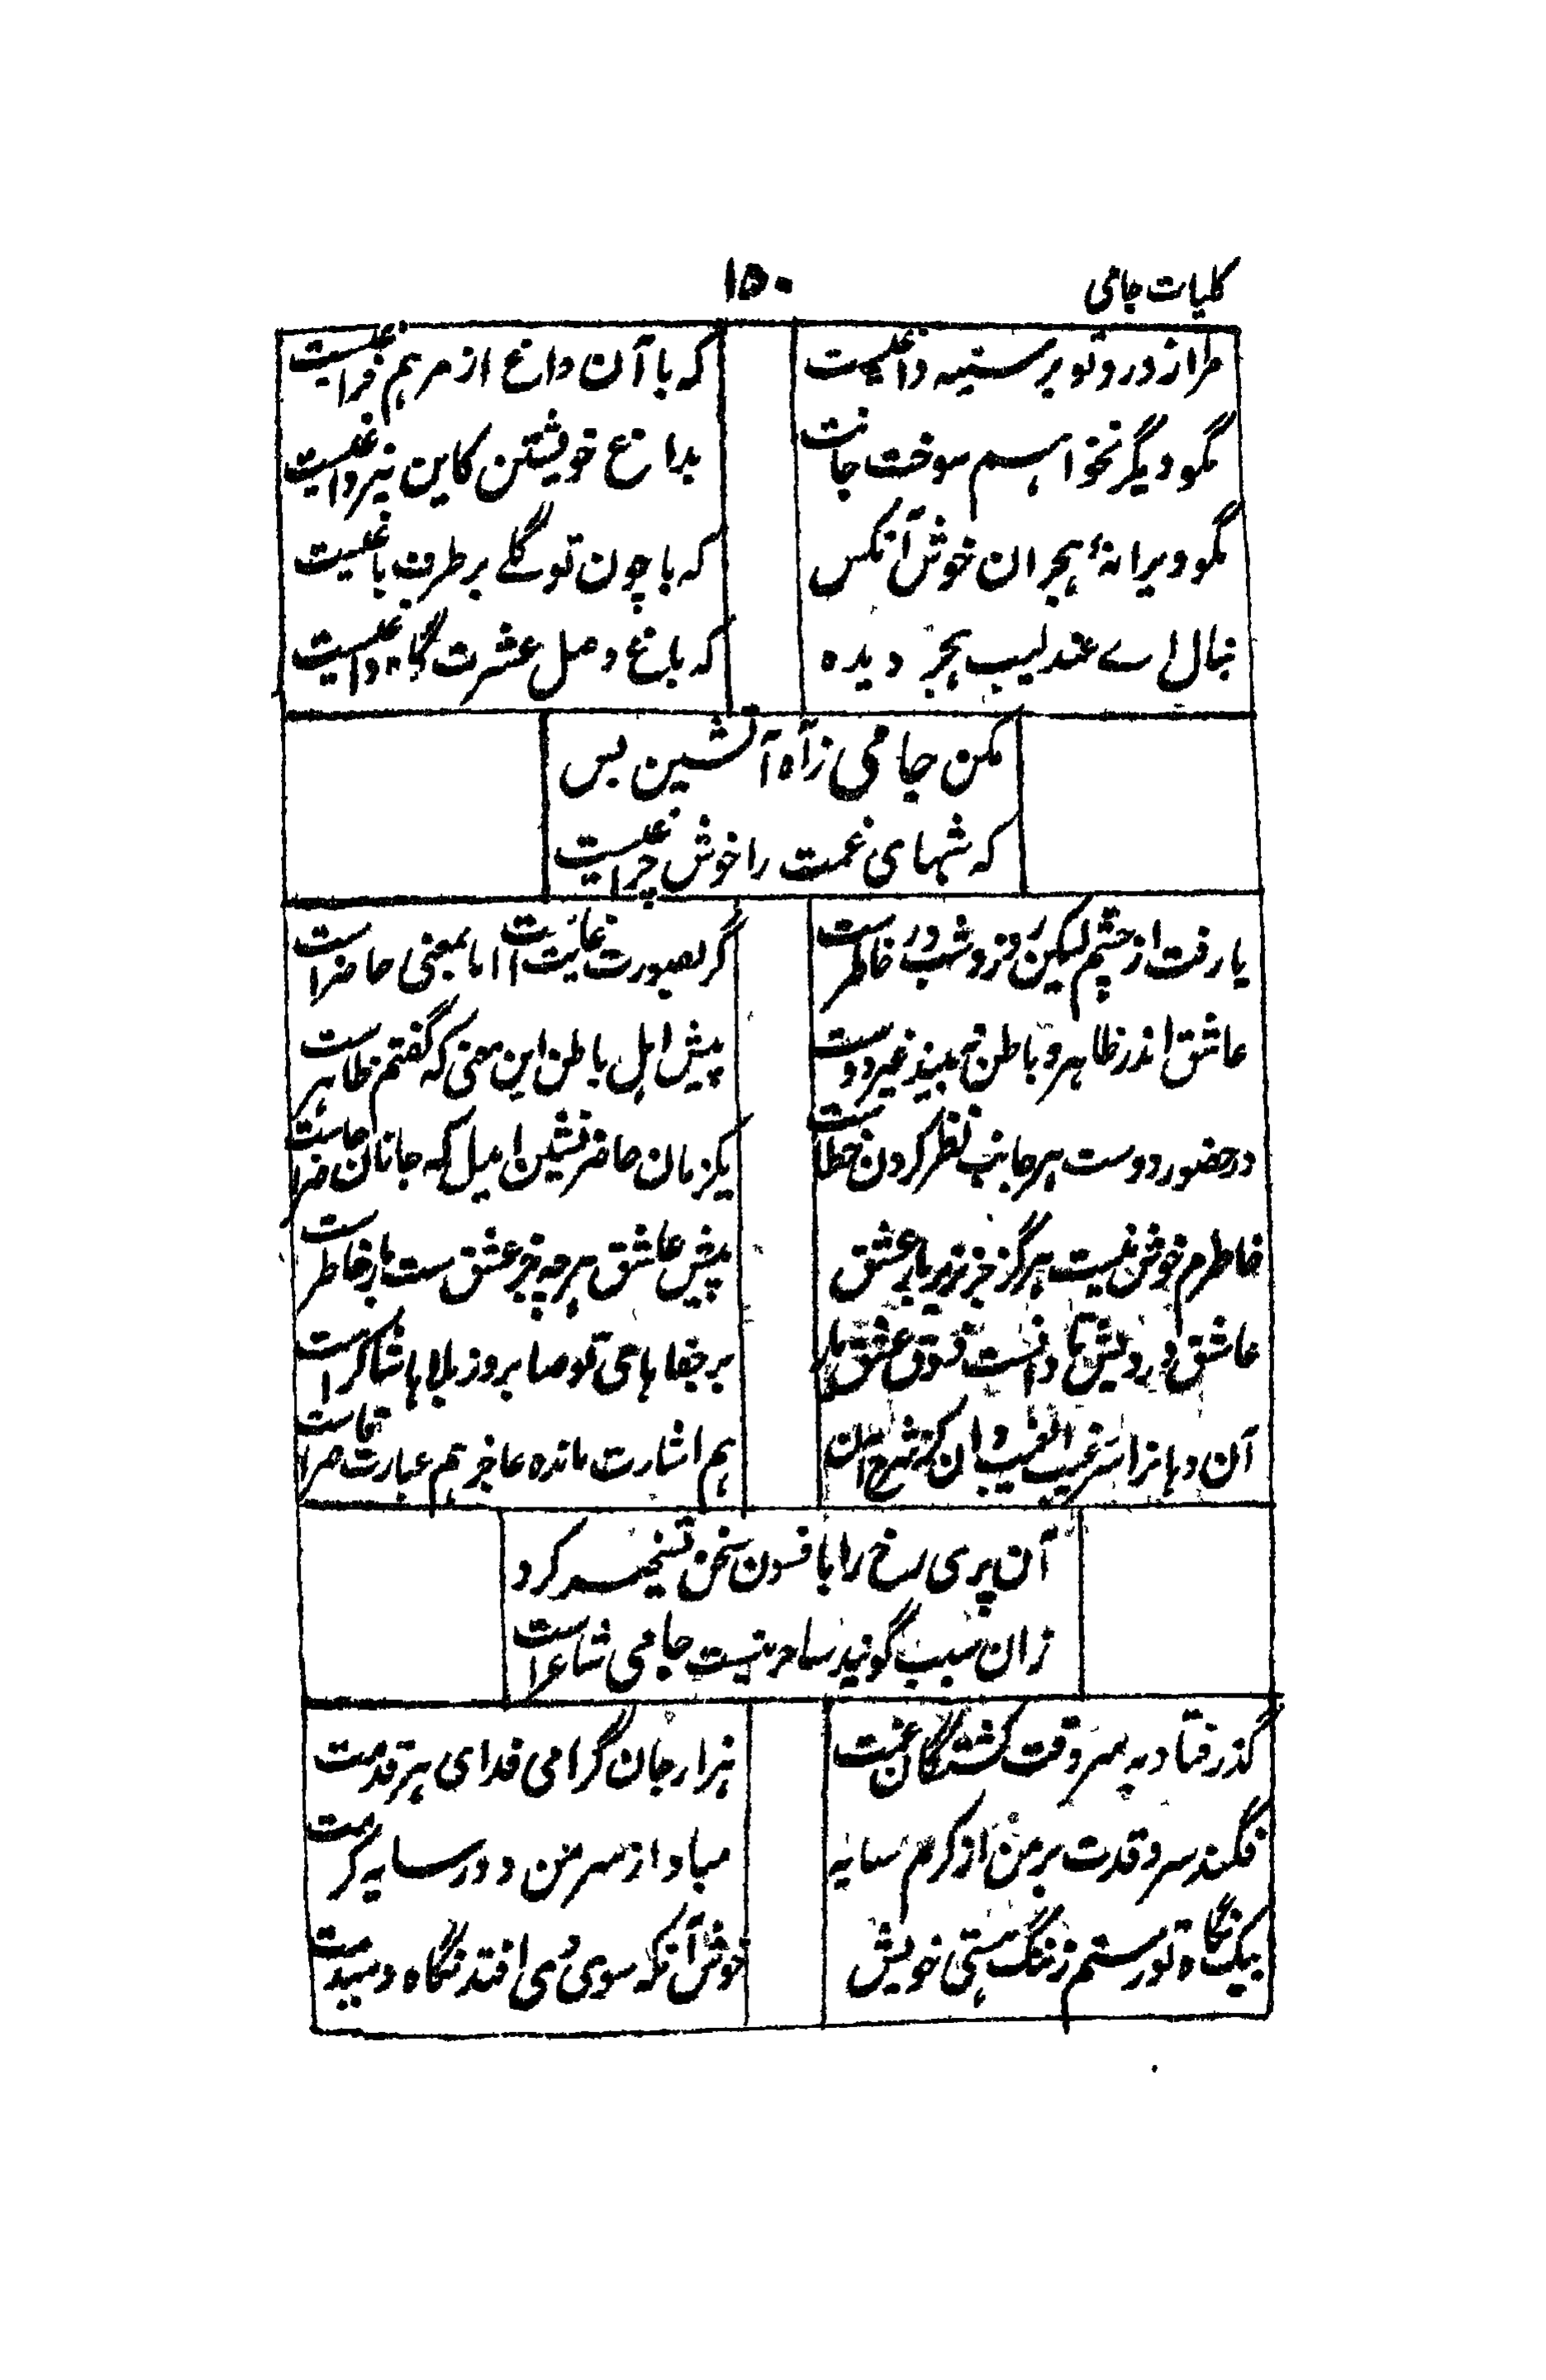 کلیات جامی
۱۵۰
مرا از درد تو بر سینه داغیست
که با آن داغ از مرهم فراغیست
مگو دیگر نخواهم سوخت جانت
بداغ خویشتن کاین نیز داغیست
مگو ویرانهٔ هجران خوش آنکس
که با چون تو گلے بر طرف باغیست
منال اے عندلیب هجر دیده
که باغ وصل عشرت گاه داغیست
مکن جامی ز آه آتشین بس
که شبهای غمت را خوش چراغیست
یار رفت از چشم لیکن روز و شب در خاطرست
گر بصورت غایبست اما بمعنی حاضرست
عاشق اندر ظاهر و باطن نه بیند غیر دوست
پیش اهل باطن این معنی که گفتم ظاهرست
در حضور دوست هر جانب نظر کردن خطاست
یکزمان حاضر نشین ایدل که جانان حاضرست
خاطرم خوش نیست هرگز جز بزیر بار عشق
پیش عاشق هرچه جز عشق ست بار خاطرست
عاشق درویش تا دانست ذوق عشق یار
بر جفاهای تو صابر وز بلاها شاکرست
آن دهانرا سر غیب الغیب دان کز شرح آن
هم اشارت مانده عاجز هم عبارت قاصرست
آن پری رخ را بافسون سخن تسخیر کرد
زان سبب گویند ساحر نیست جامی شاعرست
گذر فتاد به سر وقت کشتگان غمت
هزار جان گرامی فدای هر قدمت
فکند سرو قدت بر من از کرم سایه
مباد از سر من دور سایه کرمت
بیک نگاه تو رستم ز ننگ هستی خویش
خوش آنکه سوی وی افتد نگاه دمبدمت